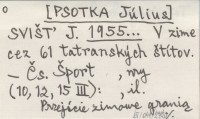 [PSOTKA Július]
SVIŠŤ J. 1955... V zime
cez 61 tatranských štítov.
– Čs. Šport , my
(10, 12, 15 III): , il.
Przejście zimowe granią